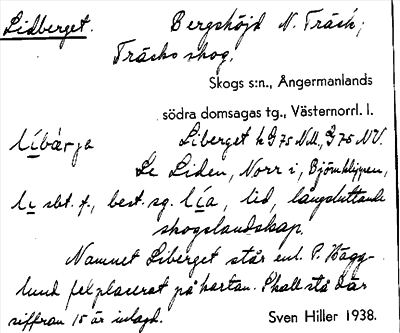 Lidberget. Bergshöjd N. Träsk,
Träsks skog.
Skogs s:n., Ångermanlands
södra domsagas tg., Västernorrl. l.
lìbárja Liberget k G 75 NU., G 75 NV.
Se Liden, Norr i, Björnklippen,
li sbt. f., best. sg. lía, lid, långsluttande
skogslandskap.
Namnet Liberget står enl. P. Hägg-
lund felplacerat på kartan. Skall stå där
siffran 15 är inlagd. Sven Hiller 1938.